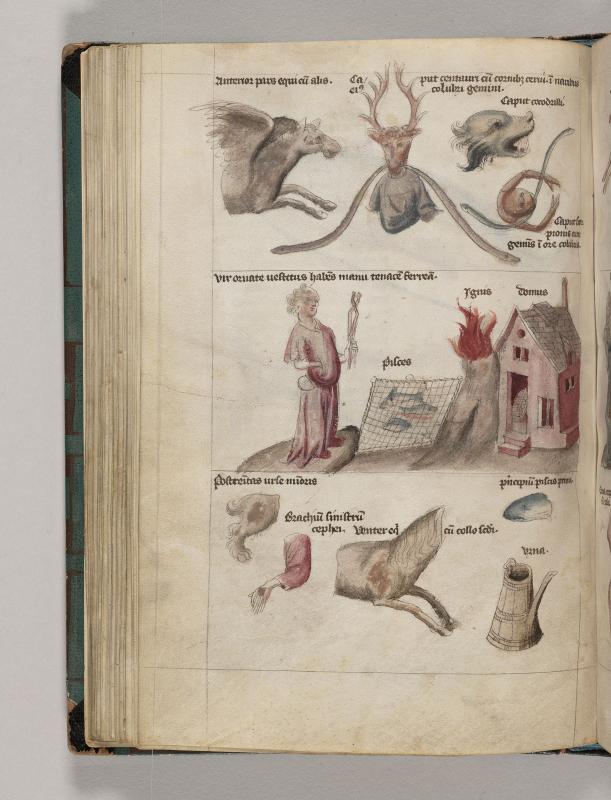 Anterior pars equi cū alis.
Ca put centauri cū cornibꝫ cerui. ī naribus
eiꝰ colubri gemini.
Caput cocodrilli
Caput
genūs ī ore colubri.
Vir ornate uestitus habēs manu tenacē ferreā.
Ignis domus
Pisces
Postremitas urse minoris
principiū piscis primi.
Brachiū sinistrū
cephei. Venter eq̇ cū collo scdi.
vrna.